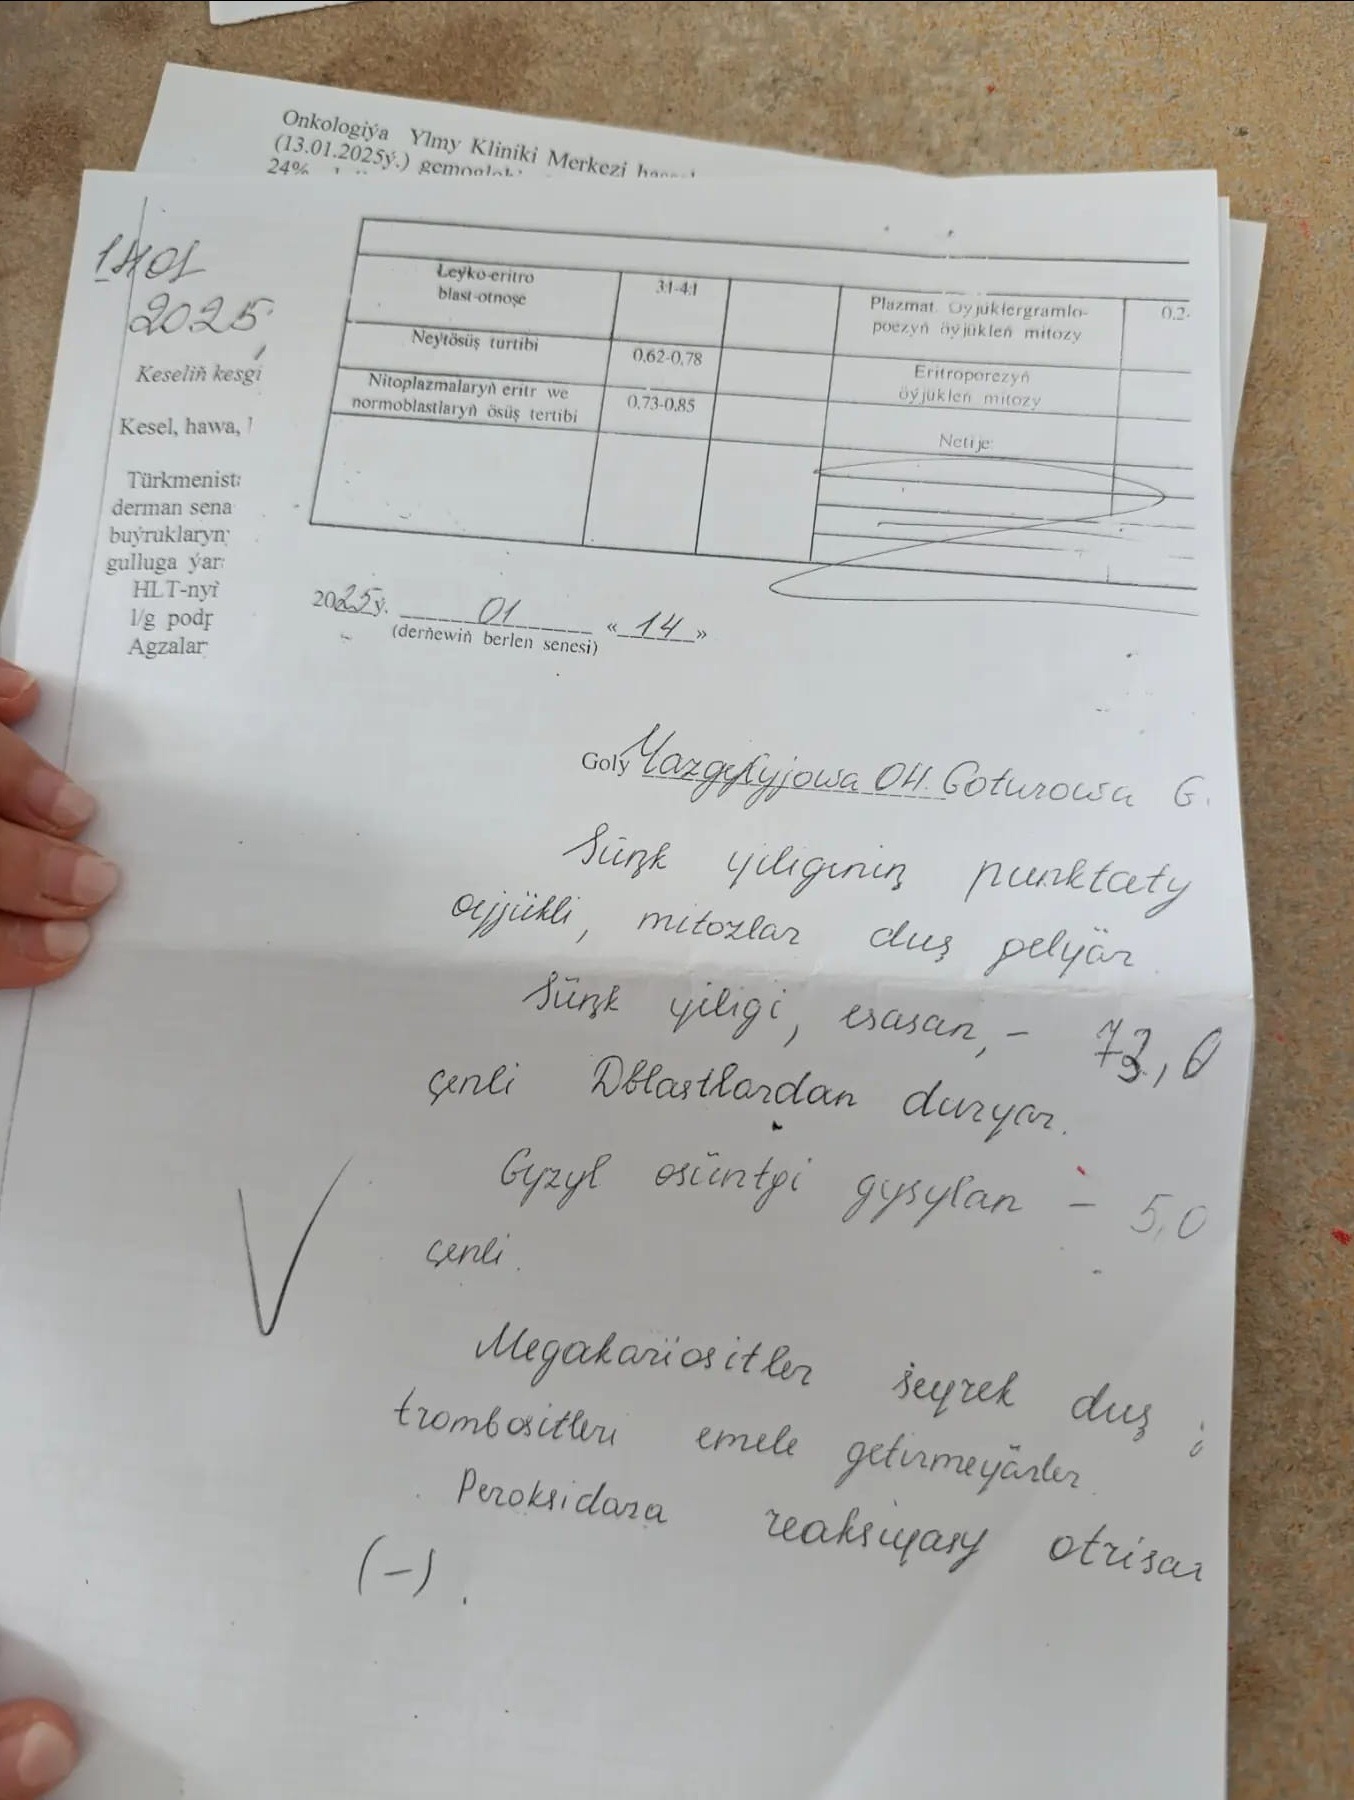 Onkologiýa Ylmy Kliniki Merkezi
(13.01.2025ý.)
24%
14 01
2025
Keseliň kesgi
Kesel, hawa,
Türkmenist
derman sena
buýruklaryn
gulluga ýar
HLT-nyi
l/g podr
Agzalar
Leýko-eritro
blast-otnoşe
3:1-4:1
Plazmat. Öýjüklergramlo-
poezyň öýjükleň mitozy
0.2-
Neýtösüş turtibi
0,62-0,78
Eritroporezyň
öýjükleň mitozy
Nitoplazmalaryň eritr we
normoblastlaryň ösüş tertibi
0,73-0,85
Netije:
2025ý. 01 «14»
(derňewiň berlen senesi)
Goly Yazgylyjowa OH. Goturowa G.
Süňk ýiliginiň punktaty
öýjükli, mitozlar duş gelýär
Süňk ýiligi, esasan, – 73,0
çenli Dblastlardan durýar.
Gyzyl ösüntgi gysylan – 5,0
çenli.
Megakariositler seýrek duş
trombositleri emele getirmeýärler
Peroksidaza reaksiýasy otrisar
(-).